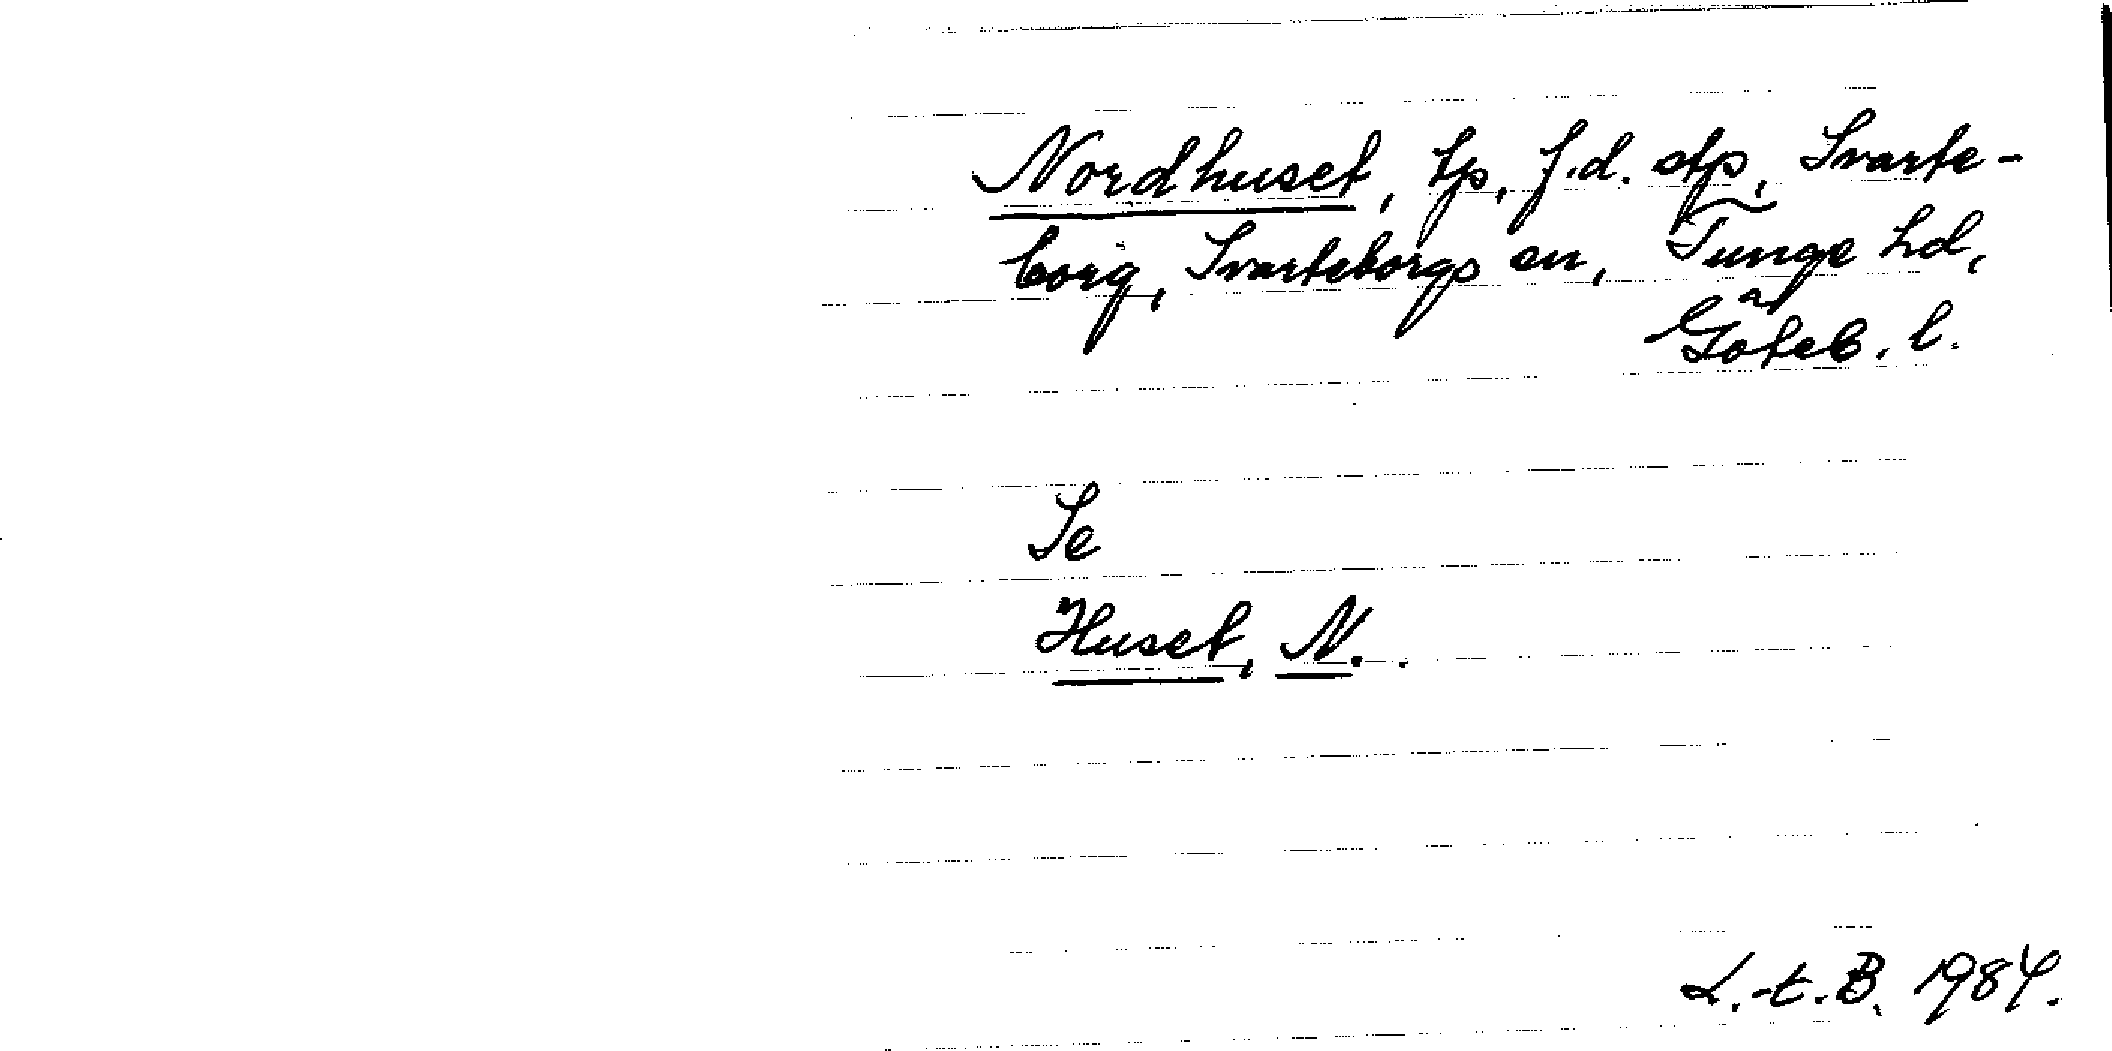 Nordhuset, tp, f.d. stp, Svarte-
borg, Svarteborgs sn, Tunge hd,
Göteb. l.
Se
Huset, N..
L.-t. B. 1984.